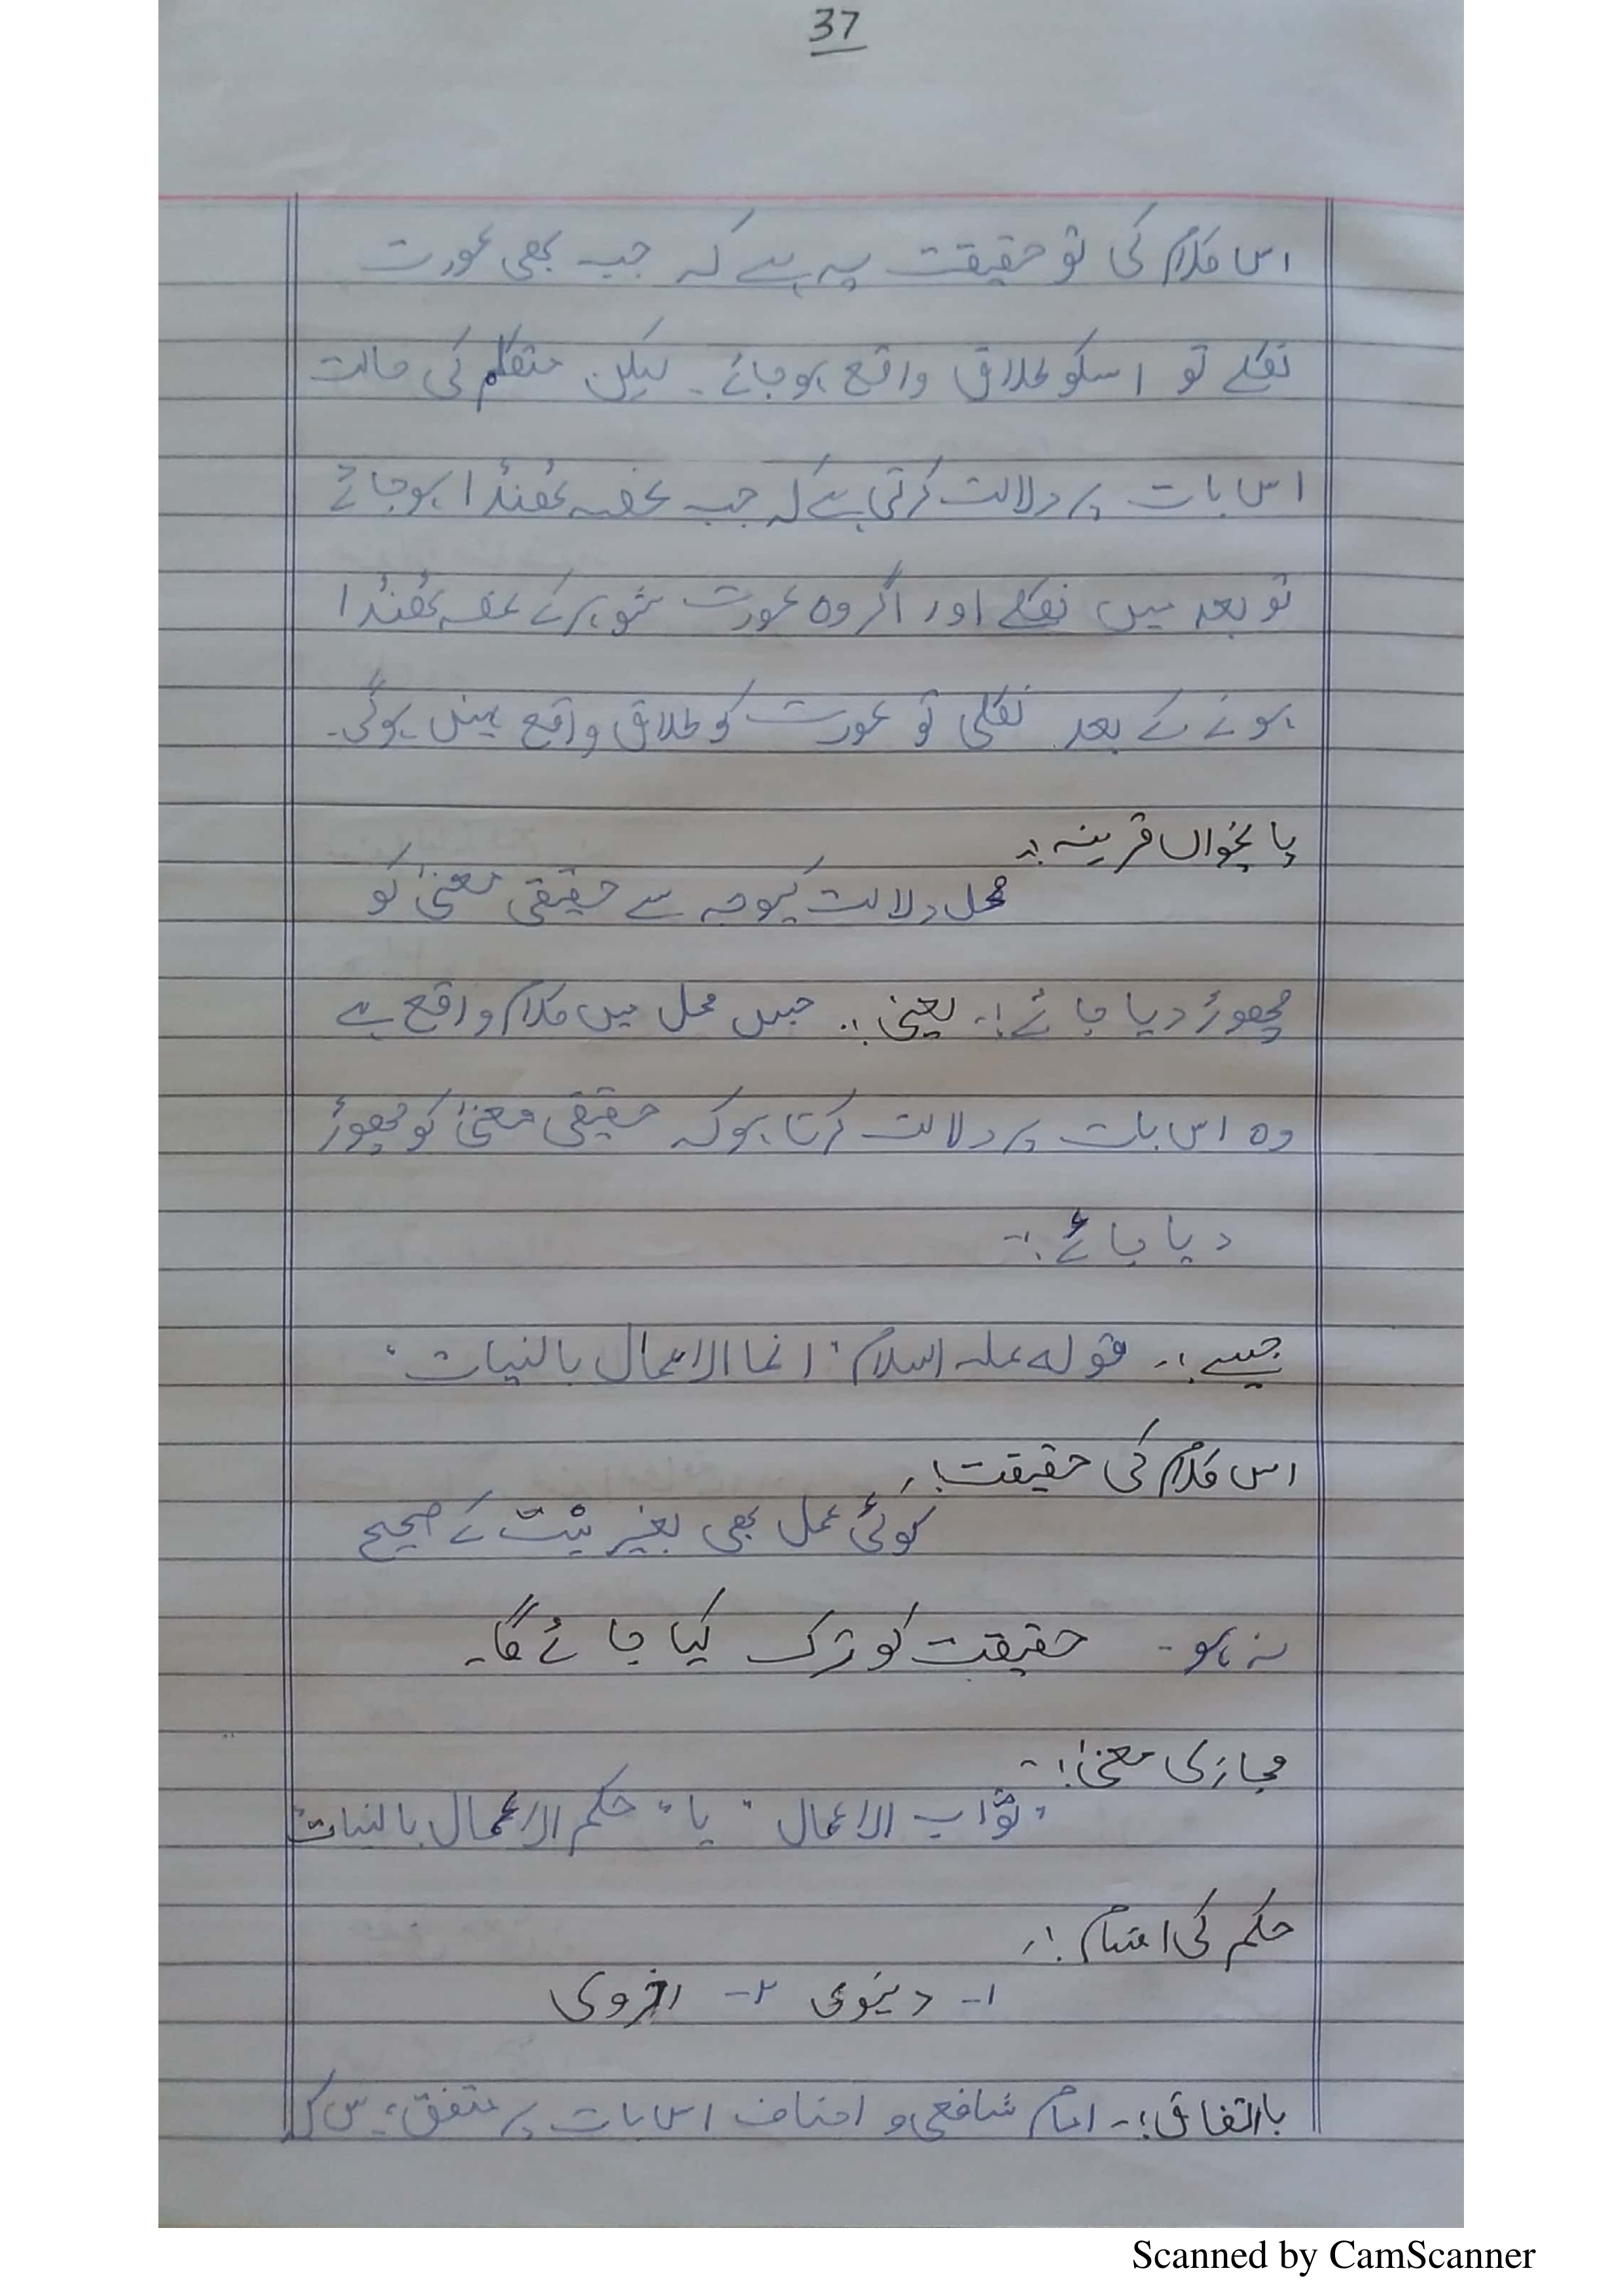 37
اس کلام کی تو حقیقت یہ ہے کہ جب بھی عورت
نکلے تو اسکو طلاق واقع ہوجائے۔ لیکن متکلم کی حالت
اس بات پر دلالت کرتی ہے کہ جب غصہ ٹھنڈا ہوجائے
تو بعد میں نکلے اور اگر وہ عورت شوہر کے غصہ ٹھنڈا
ہونے کے بعد نکلی تو عورت کو طلاق واقع نہیں ہوگی۔
پانچواں قرینہ:۔
محل دلالت کیوجہ سے حقیقی معنیٰ کو
چھوڑ دیا جائے:۔ یعنی:۔ جس محل میں کلام واقع ہے
وہ اس بات پر دلالت کرتا ہو کہ حقیقی معنیٰ کو چھوڑ
دیا جائے:۔
جیسے:۔ قولہ علیہ السلام "انما الاعمال بالنیات"
اس کلام کی حقیقت:۔
کوئی عمل بھی بغیر نیّت کے صحیح
نہ ہو۔ حقیقت کو ترک کیا جائے گا۔
مجازی معنیٰ:۔
"ثواب الاعمال" یا "حکم الاعمال بالنیات"
حکم کی اقسام:۔
۱- دنیوی ۲- اخروی
بالاتفاق:۔ امام شافعی و احناف اس بات پر متفق ہیں کہ
Scanned by CamScanner